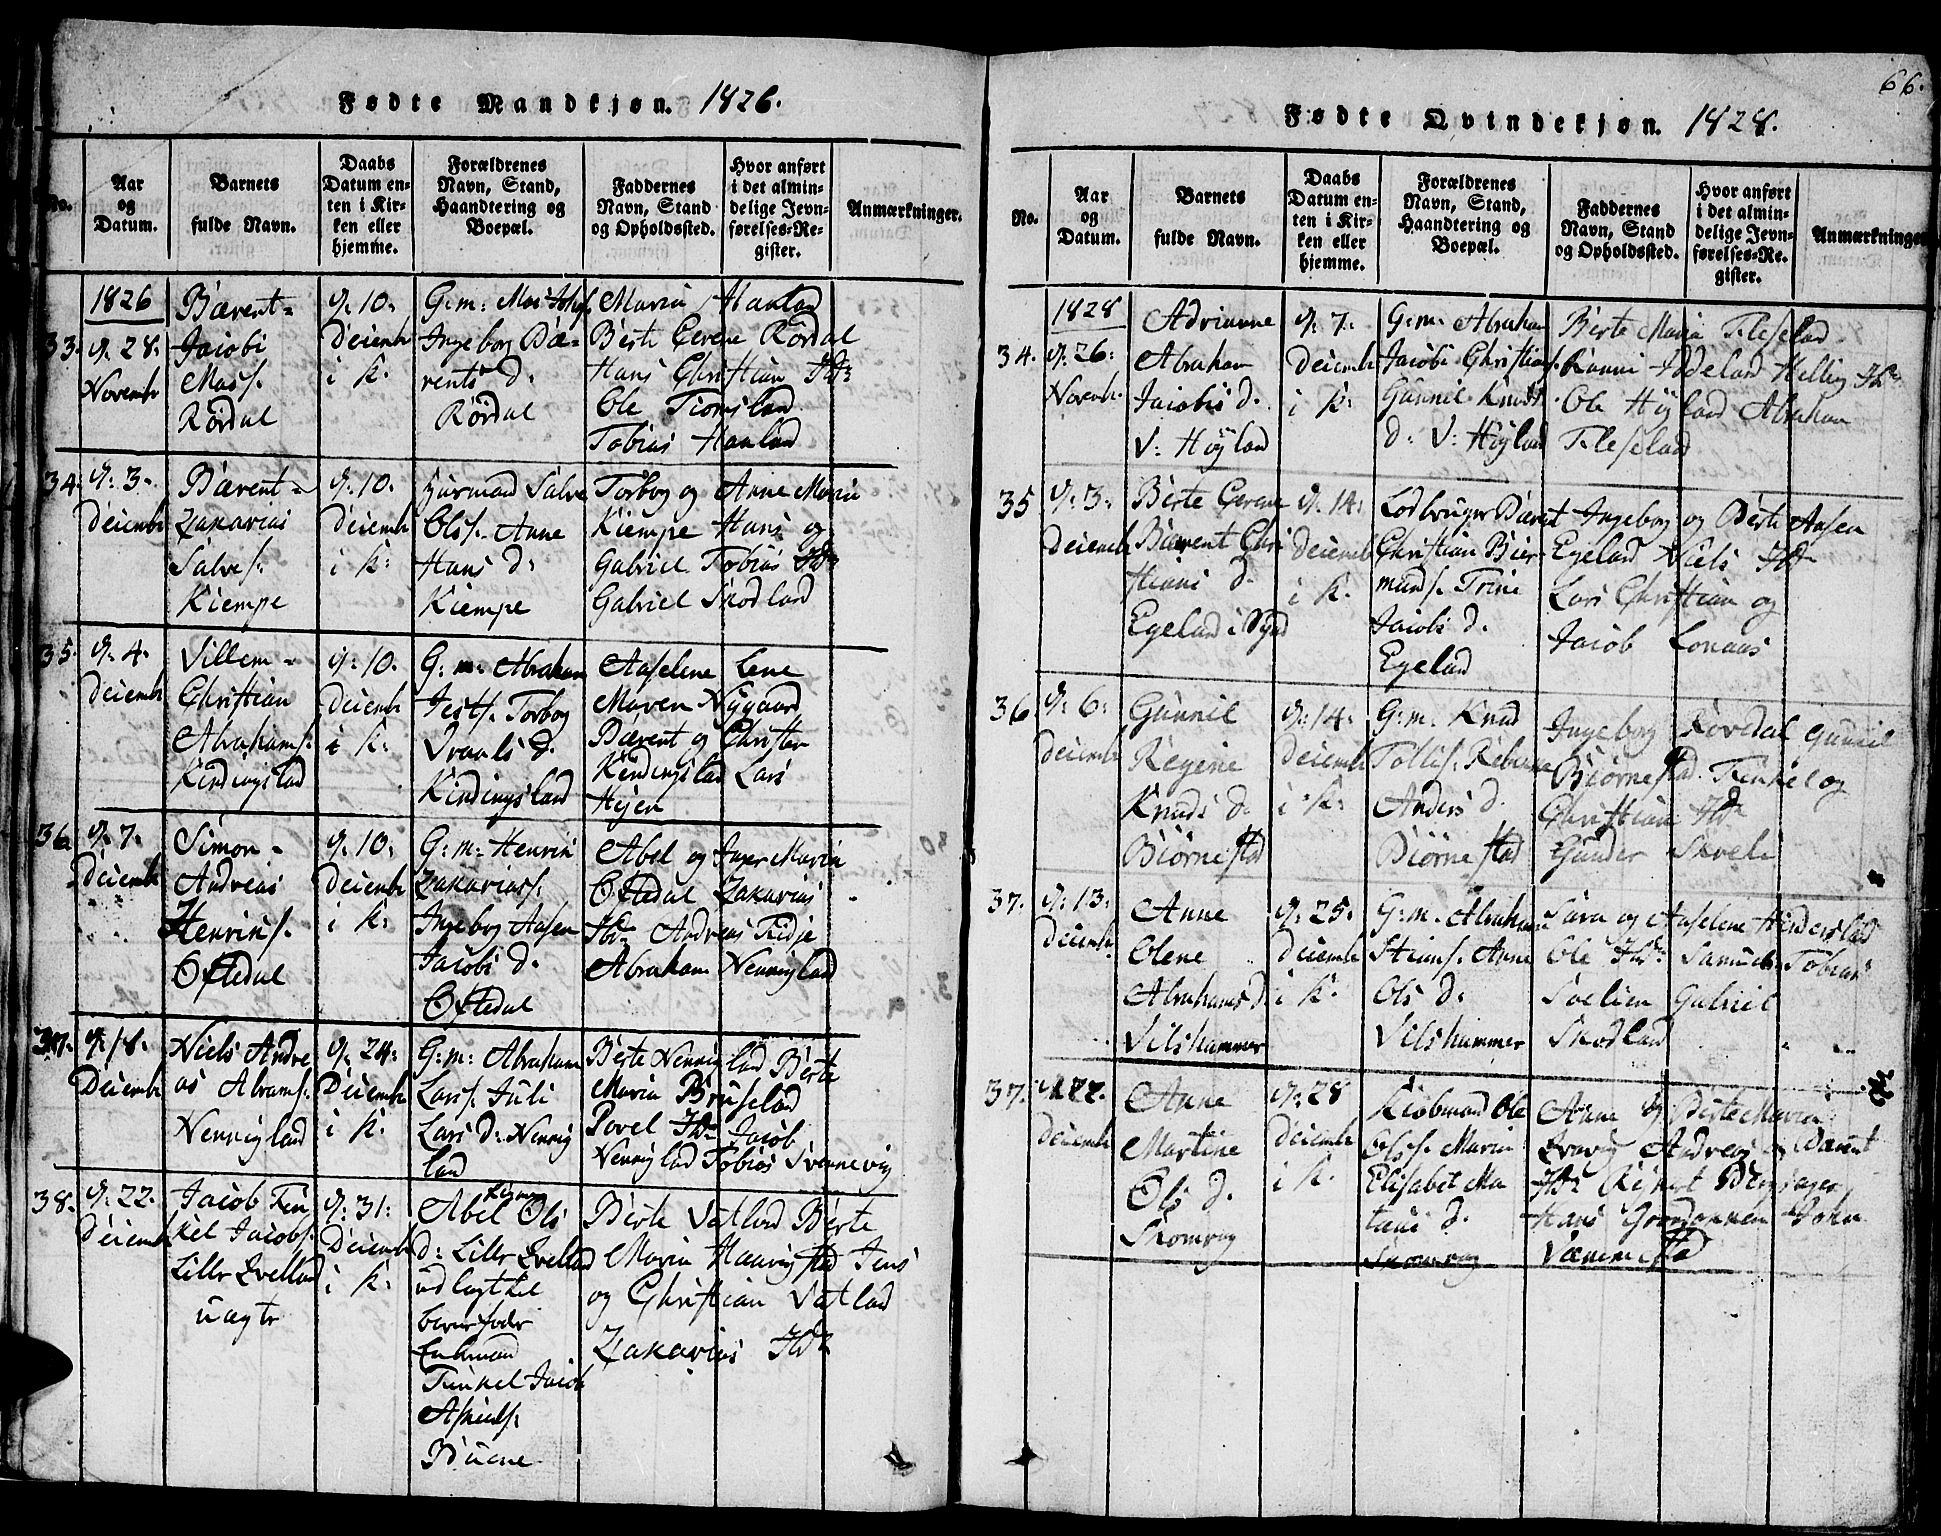 Fødte Mandkjøn. 1826.
No.
Aar
og
Datum.
Barnets
fulde Navn.
Daabs
Datum en-
ten i Kir-
ken eller
hjemme.
Forældrenes
Navn, Stand,
Haandtering og
Boepæl.
Faddernes
Navn, Stand
og Opholdssted.
Hvor anført
i det almin-
delige Jevn-
førelses-Re-
gister.
Anmærkninger.
33.
1826
d. 28.
Novembr
Bærent
Jacobi
Mass.
Rördal
d. 10.
Decembr
i K.
G:m: Mas
Ingeborg Bæ-
rents d.
Rördal
Maria Hanland
Berte Serene Rördal
Hans Christian Ibd
Ole Tiomsland
Tobias Hanland
34.
d. 3.
Decembr
Bærent
Zakarias
Salves.
Kiempe
d. 10.
Decembr
i K.
Huusmand Salve
Ols. Anne
Hans d.
Kiempe
Torbog og Anne Maria
Kiempe Hans og
Gabriel Tobias Ibd
Gabriel Skodland
35.
d. 4.
Decembr
Villem
Christian
Abrahams.
Kindingsland
d. 10.
Decembr
i K.
G:m: Abraham
Jests. Torbog
d.
Kindingsland
Aaselene Lene
Maren Nygaard
Bærent og Christen
Kindingsland Lars
36.
d. 7.
Decembr
Simon
Andreas
Henriks.
Oftedal
d. 10.
Decembr
i K.
G:m: Henrik
Zakarias s.
Ingebog Aasen
Jacobs d.
Oftedal
Abel og Inger Maria
Oftedal Zakarias
Ibd Andreas
Abraham Nennigland
37.
d. 18.
Decembr
Niels Andre
as Abrams.
Nennigland
d. 24.
Decembr
i K.
G:m: Abraham
Lars s. Juli
Lars d. Nennig
land
Berte Nennigland Berte
Maria Bruseland
Povel Ibd Jacob
Nennigland Tobias Svennevig
38.
d. 22.
Decembr
Jacob Ten
kel Jacobs.
Lille Qvelland
uægte
d. 31.
Decembr
i K.
Abel Ols
d. Lille Qvelland
udlagt til
barnefader
Enkmand
Tenkel Jacob
Buene
Berte Vatland Berte
Maria Haavigstad Jens
og Christian Vatland
Zakarias Ibd
66.
Fødte Qvindekjøn. 1828.
No.
Aar
og
Datum.
Barnets
fulde Navn.
Daabs
Datum en-
ten i Kir-
ken eller
hjemme.
Forældrenes
Navn, Stand,
Haandtering og
Boepæl.
Faddernes
Navn, Stand
og Opholdssted.
Hvor anført
i det almin-
delige Jevn-
førelses-Re-
gister.
Anmærkninger
34.
1828
d. 26.
Novemb.
Adrianne
Abraham
Jacobis d.
V: Höyland
d. 7.
Decembr
i K.
G:m: Abraham
Jacobi Christians.
Gunnil Knuds
d. V: Höyland
Berte Maria Fleseland
Ranni Iddeland Hellig Ibd
Ole Höyland Abraham
Fleseland
35
d. 3.
Decembr
Berte Serene
Bærent Chri
stians d.
Egeland i Synd
d. 14.
Decembr
i K.
Lodbruger Bærent
Christian Bier-
mans. Trine
Jacobs d.
Egeland
Ingebog og Berte Aasen
Egeland Niels Ibd
Lars Christian og
Jacob Lonaas
36
d. 6.
Decembr
Gunnil
Regine
Knuds d.
Biörnestad
d. 14.
Decembr
i K.
G:m: Knud
Tollis.
Anders d.
Biörnestad
Ingebog Rövedal Gunnil
Biörnestad Tenkel og
Christian Ibd
Gunder Skeele
37.
d. 13.
Decembr
Anne
Olene
Abrahams d.
Vilshammer
d. 25.
Decembr
i K.
G:m: Abraham
Steins. Anne
Ols d.
Vilshammer
Sara og Aaselene Hindersland
Ole Ibd Samuel Tobias
Soelien Gabriel
Skodland
37.
d. 22.
Decembr
Anne
Martine
Ols d.
Skomrag
d. 28
Decembr
i K.
Kiöbmand Ole
Ols s. Maria
Elisabet Ma
d.
Skomrag
Anne og Berte Maria
Andreas og Bærent
Ibd Reinert
Hans John
Vænnestad